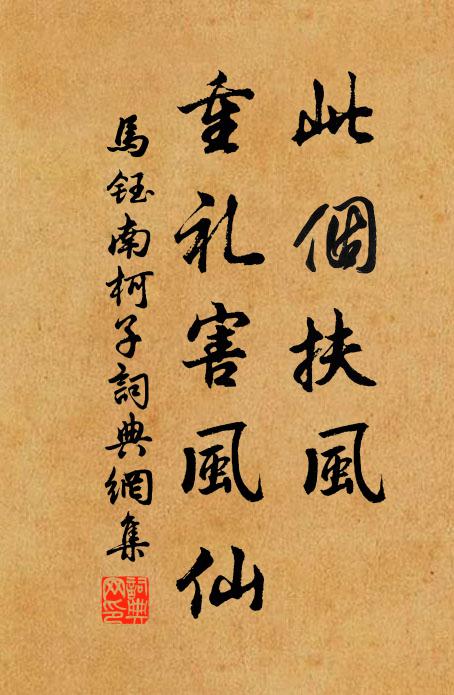 此個扶風
重礼害風仙
馬鈺南柯子詞典網集
詞典网印